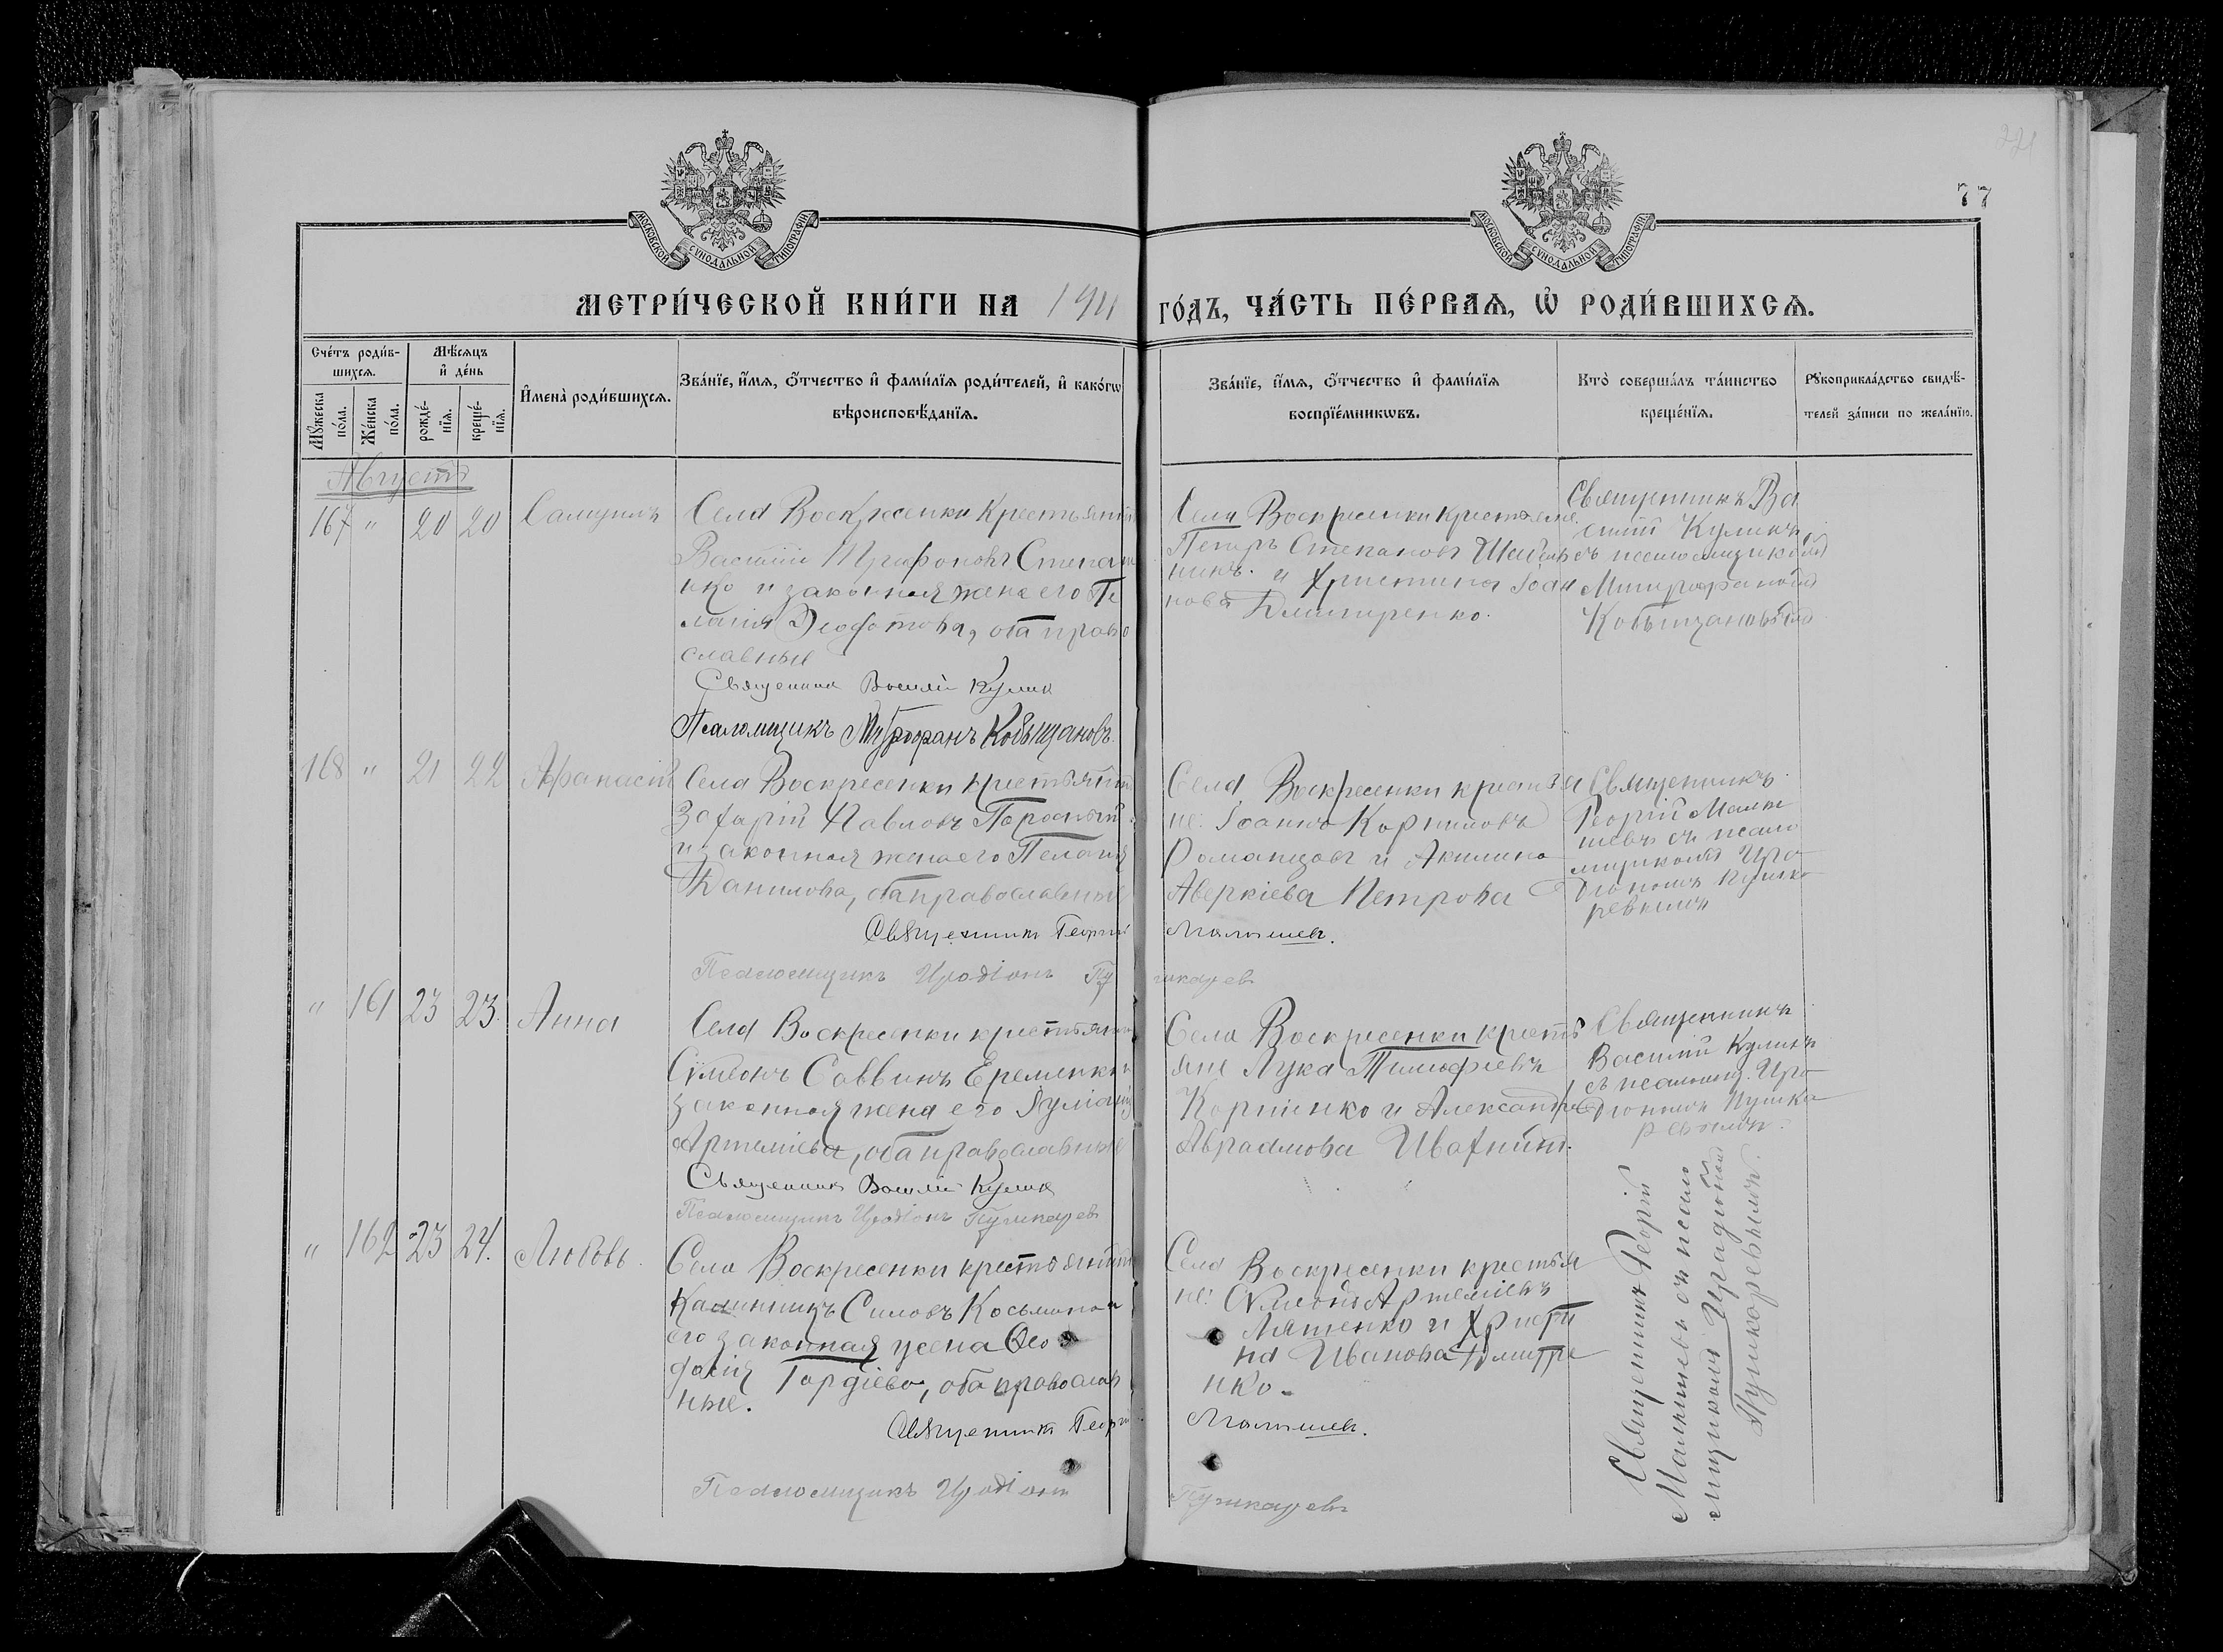 221
77
МОСКОВСКОЙ СѴНОДАЛЬНОЙ ТИПОГРАФІИ
МОСКОВСКОЙ СѴНОДАЛЬНОЙ ТИПОГРАФІИ
МЕТРИ́ЧЕСКОЙ КНИ́ГИ НА 1911
ГО́ДЪ, ЧА́СТЬ ПЕ́РВАѦ, Ѡ҆ РОДИ́ВШИХСѦ.
Сче́тъ роди́в-
шихсѧ.
Мꙋ́жеска по́ла.
Же́нска по́ла.
Мѣ́сѧцъ
и҆ де́нь
рожде́-
нїѧ.
креще́-
нїѧ.
И҆мена̀ роди́вшихсѧ.
Зва́нїе, и҆́мѧ, ѻ҆́тчество и҆ фами́лїѧ роди́телей, и҆ како́гѡ
вѣроисповѣ́данїѧ.
Зва́нїе, и҆́мѧ, ѻ҆́тчество и҆ фами́лїѧ
воспрїе́мникѡвъ.
Кто̀ соверша́лъ та́инство
креще́нїѧ.
Рꙋкоприкла́дство свидѣ́-
телей за́писи по жела́нїю.
Августъ
167 " 20 20 Самуилъ
Села Воскресенки крестьянинъ
Василій Трифоновъ Степан
нко и законная жена его Пе
лагія Ѳеофотова, оба право
славные
Священникъ Василій Куликъ
Псаломщикъ Митрофанъ Кобыщановъ.
Села Воскресенки крестьяне.
Петръ Степановъ
никъ. и Христина Іоан
нова Дмитренко.
Священникъ Ва
силій Куликъ
съ псаломщикомъ
Митрофаномъ
Кобыщановымъ
168 " 21 22 Аѳанасій
Села Воскресенки крестьянинъ
Захарій Павловъ
и законная жена его Пелагія
Данилова, оба православные
Священникъ Георгій Малышев.
Псаломщикъ Иродіонъ Пушкарев
Села Воскресенки крестья
не: Іоаннъ Корниловъ
Романцовъ и Акилина
Аверкіева Петрова
Священникъ
Георгій Малы
шевъ съ псало
мщикомъ Иро
діономъ Пушка
ревымъ
" 161 23 23. Анна
Села Воскресенки крестьянинъ
Сѵмеонъ Саввинъ Еременко и
законная жена его Іуліанія
Артеміева, оба православные
Священникъ Василій Куликъ
Псаломщикъ Иродіонъ Пушкарев
Села Воскресенки кресть
яне Лука Тимофіевъ
Корніенко и Александра
Авраамова
Священникъ
Василій Куликъ
съ псаломщ. Иро
діономъ Пушка
ревымъ.
" 162 23 24. Любовь.
Села Воскресенки крестьянинъ
Каллиникъ Силовъ
его законная жена Ѳео
фанія Гордіева, оба православ
ные.
Священникъ Георгій Малышев.
Псаломщикъ Иродіонъ Пушкарев
Села Воскресенки крестья
не: Сѵмеонъ Артеміевъ
Ляшенко и Христи
на Иванова Дмитре
нко.
Священникъ Георгій
Малышевъ съ псало
мщикомъ Иродіономъ
Пушкаревымъ.